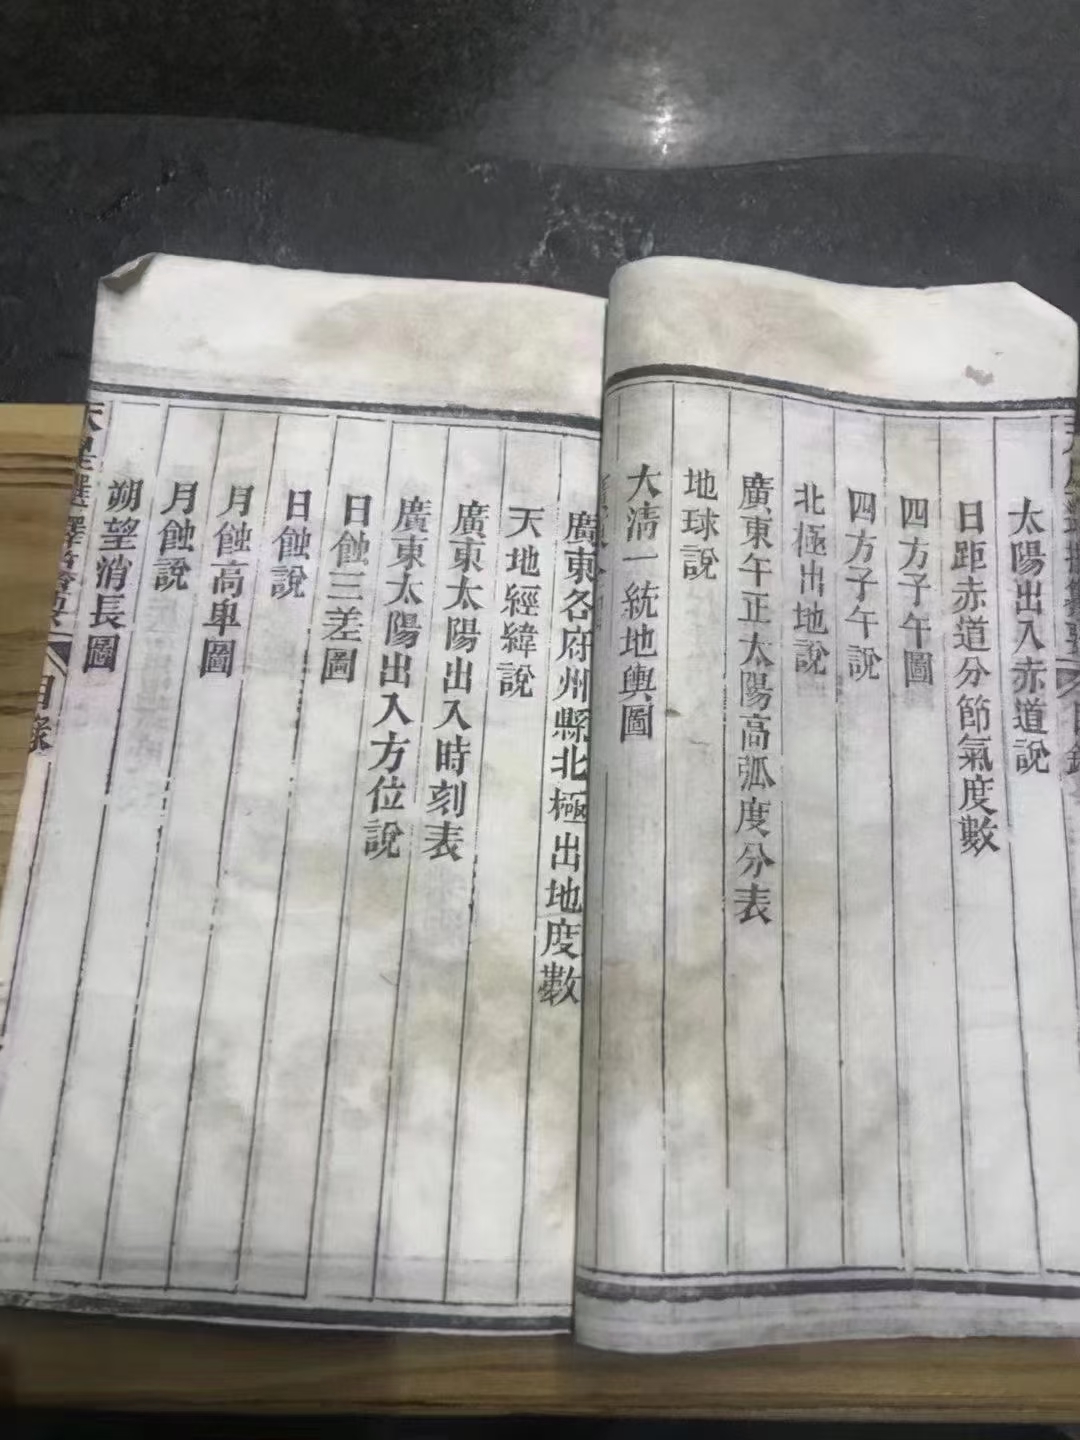 太陽出入赤道說
日距赤道分節氣度數
四方子午圖
四方子午說
北極出地說
廣東午正太陽高弧度分表
地球說
大清一統地輿圖
廣東各府州縣北極出地度數
天地經緯說
廣東太陽出入時刻表
廣東太陽出入方位說
日蝕三差圖
日蝕說
月蝕高卑圖
月蝕說
朔望消長圖
選擇
目錄